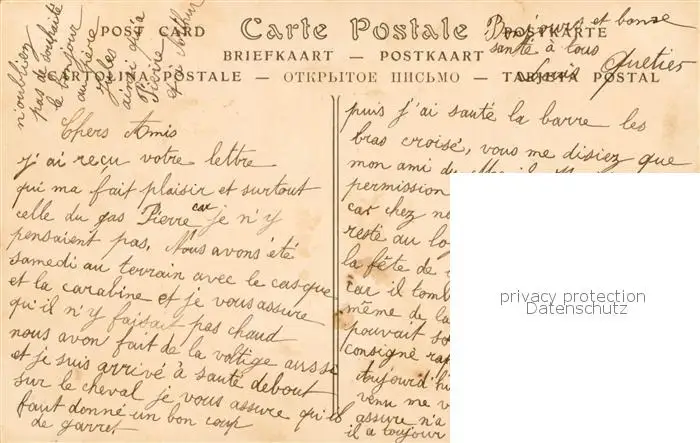 POST CARD Carte Postale POSTKARTE
BRIEFKAART — POSTKAART
CARTOLINA POSTALE — ОТКРЫТОЕ ПИСЬМО — TARJETA POSTAL
n'oublien
pas de souhaité
le bonjour
au frère
Jules
ainsi qi'a
Arthur
Bonjours et bonne
santé à tous
Louis Quetier
Chers Amis
j'ai reçu votre lettre
qui ma fait plaisir et surtout
celle du gas Pierre car je n'y
pensaient pas, Nous avons été
samedi au terrain avec le casque
et la carabine et je vous assure
qu'il n'y faisait pas chaud
nous avon fait de la voltige aussi
et je suis arrivé à sauté debout
sur le cheval je vous assure qu'il
faut donné un bon coup
de jarret
puis j'ai sauté la barre les
bras croisé, vous me disiez que
mon ami du
permission
car chez
resté au
la fête de
car il tomb
même de la
pouvait
consigné
Aujourd'hui
venu me v
assure n'a
il a toujour
privacy protection
Datenschutz